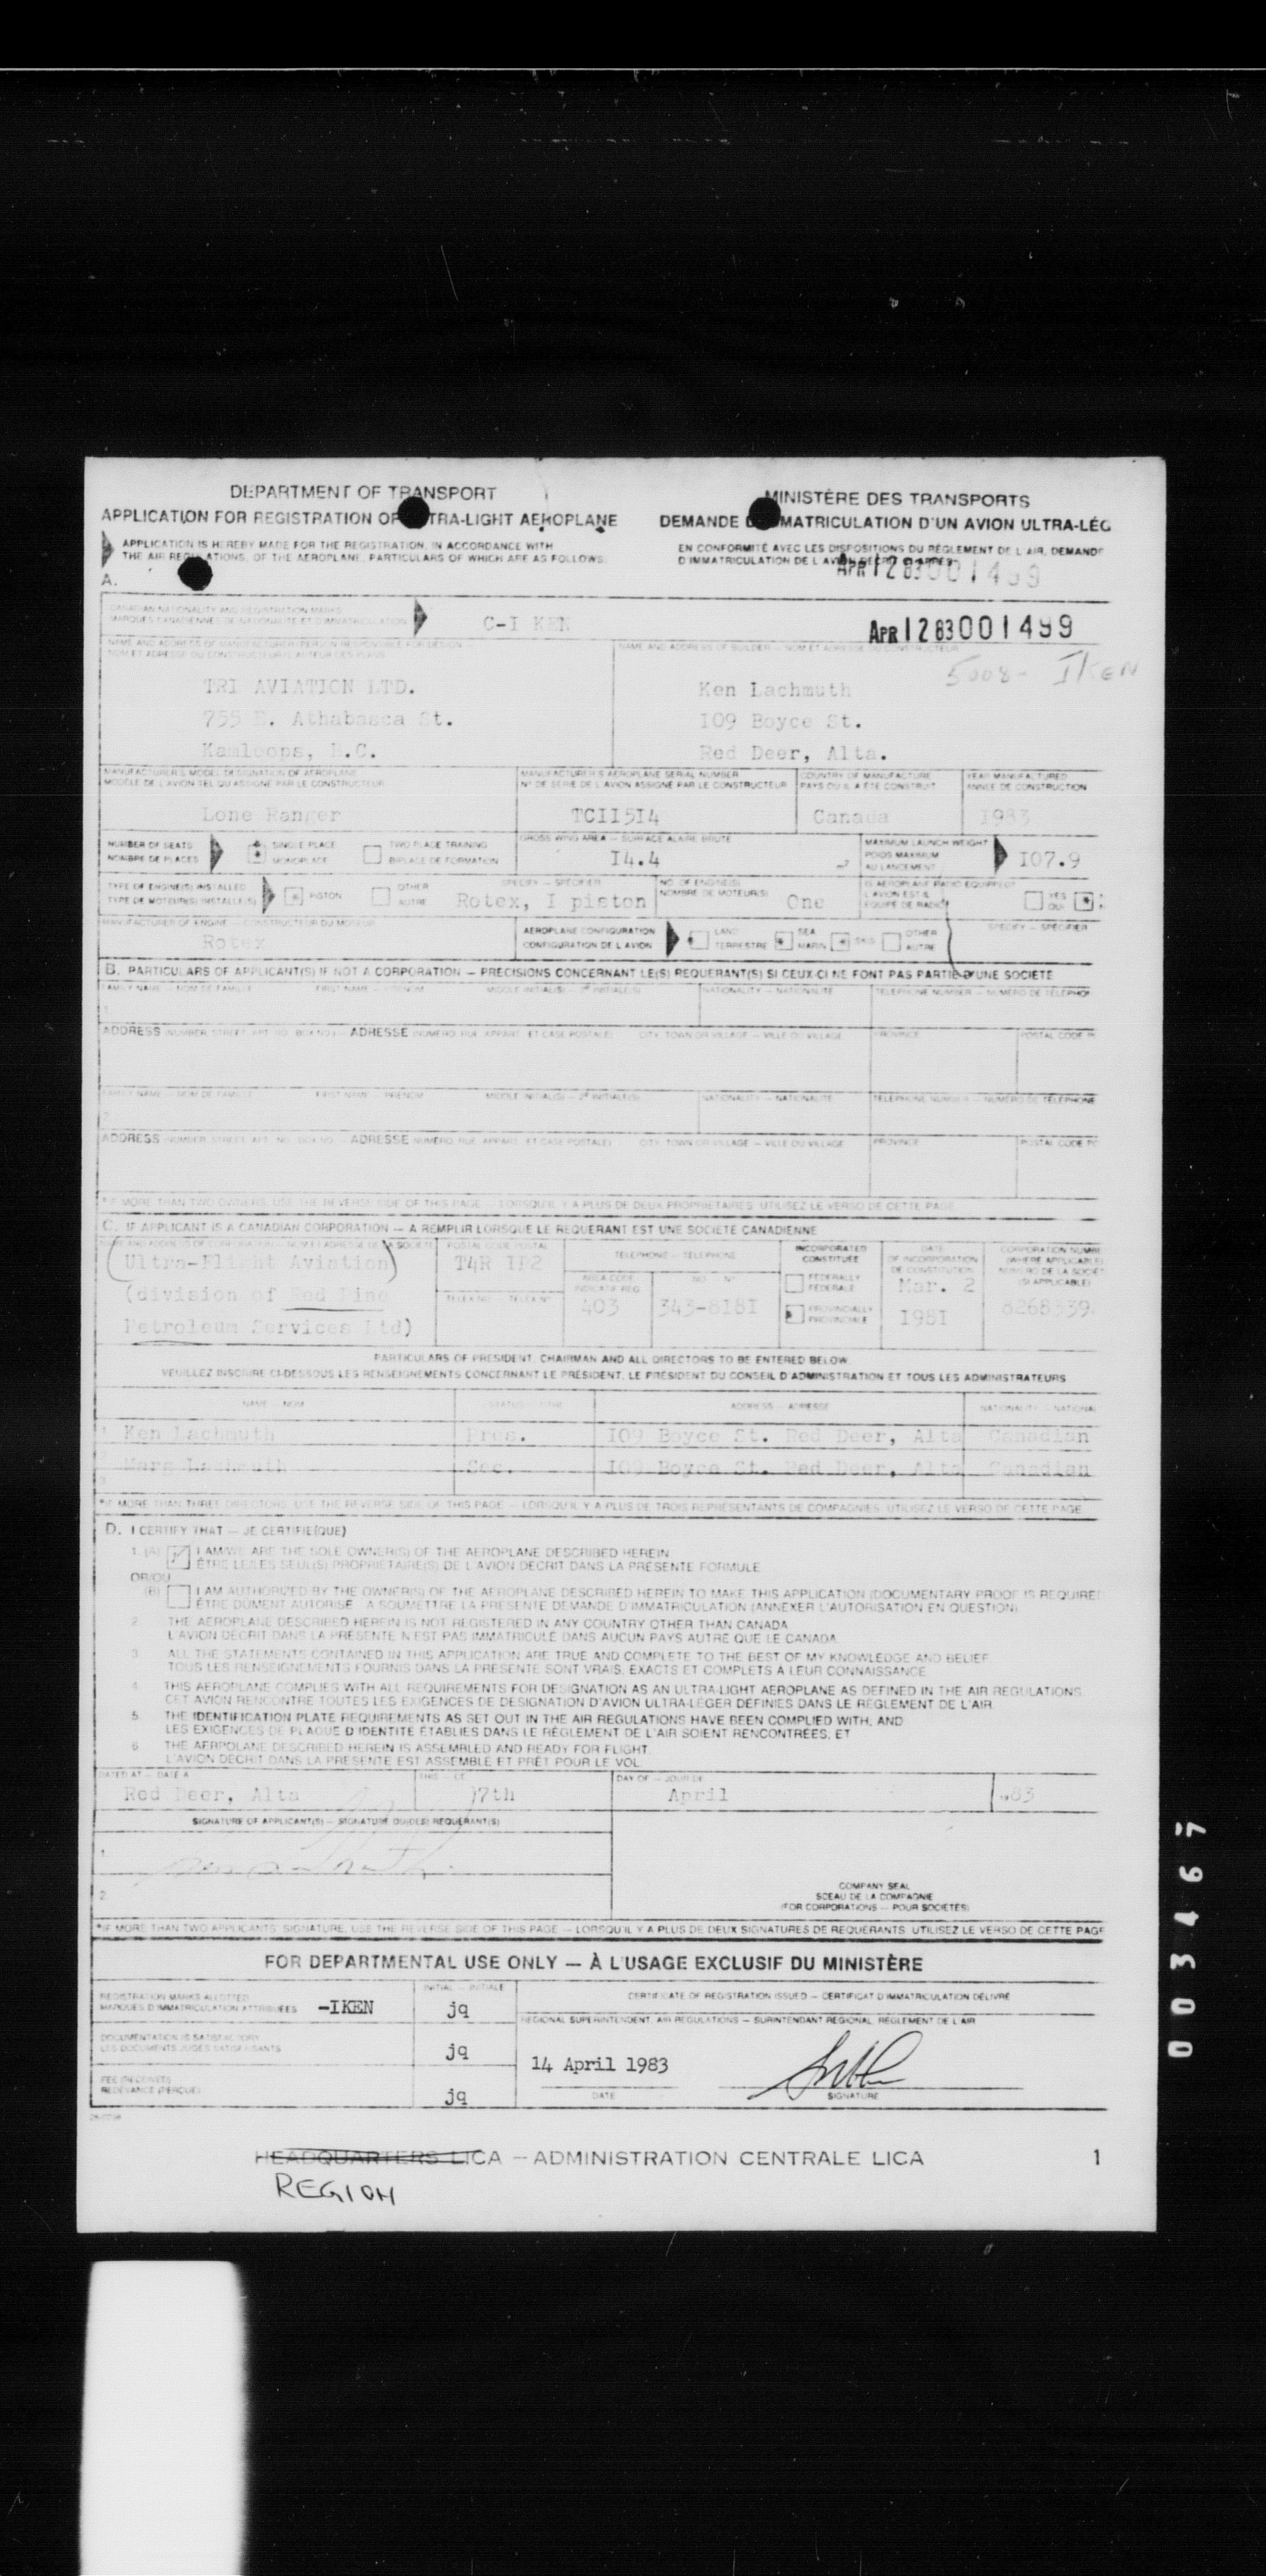 DEPARTMENT OF TRANSPORT
APPLICATION FOR REGISTRATION OF TRA-LIGHT AEROPLANE
APPLICATION IS HEREBY MADE FOR THE REGISTRATION, IN ACCORDANCE WITH
THE AIR REGULATIONS, OF THE AEROPLANE, PARTICULARS OF WHICH ARE AS FOLLOWS:
MINISTÈRE DES TRANSPORTS
DEMANDE D MATRICULATION D'UN AVION ULTRA-LÉG
EN CONFORMITÉ AVEC LES DISPOSITIONS DU RÈGLEMENT DE L'AIR, DEMANDE
D'IMMATRICULATION DE L'AVION DÉCRIT CI-APRÈS
APR 12 83 001499
A.
CANADIAN NATIONALITY AND REGISTRATION MARKS
MARQUES CANADIENNES DE NATIONALITÉ ET D'IMMATRICULATION
C-I KEN
APR 12 83 001499
NAME AND ADDRESS OF MANUFACTURER/PERSON RESPONSIBLE FOR DESIGN
NAME AND ADDRESS OF BUILDER — NOM ET ADRESSE DU CONSTRUCTEUR
5008- IKEN
TRI AVIATION LTD.
755 E. Athabasca St.
Kamloops, B.C.
Ken Lachmuth
I09 Boyce St.
Red Deer, Alta.
MANUFACTURER'S MODEL DESIGNATION OF AEROPLANE
MODÈLE DE L'AVION TEL QU'ASSIGNÉ PAR LE CONSTRUCTEUR
Lone Ranger
MANUFACTURER'S AEROPLANE SERIAL NUMBER
N° DE SÉRIE DE L'AVION ASSIGNÉ PAR LE CONSTRUCTEUR
TCII5I4
COUNTRY OF MANUFACTURE
PAYS OÙ IL A ÉTÉ CONSTRUIT
Canada
YEAR MANUFACTURED
ANNÉE DE CONSTRUCTION
I983
NUMBER OF SEATS
NOMBRE DE PLACES
SINGLE PLACE
MONOPLACE
TWO PLACE TRAINING
BIPLACE DE FORMATION
GROSS WING AREA — SURFACE ALAIRE BRUTE
I4.4
MAXIMUM LAUNCH WEIGHT
POIDS MAXIMUM
AU LANCEMENT
I07.9
TYPE OF ENGINE(S) INSTALLED
TYPE DE MOTEUR(S) INSTALLÉ(S)
PISTON
OTHER
AUTRE
SPECIFY — SPÉCIFIER
Rotex, I piston
NO. OF ENGINE(S)
NOMBRE DE MOTEUR(S)
One
IS AEROPLANE RADIO EQUIPPED?
L'AVION EST-IL
ÉQUIPÉ DE RADIO?
YES
OUI
MANUFACTURER OF ENGINE — CONSTRUCTEUR DU MOTEUR
Rotex
AEROPLANE CONFIGURATION
CONFIGURATION DE L'AVION
LAND
TERRESTRE
SEA
MARIN
SKIS
OTHER
AUTRE
SPECIFY — SPÉCIFIER
B. PARTICULARS OF APPLICANT(S) IF NOT A CORPORATION — PRÉCISIONS CONCERNANT LE(S) REQUÉRANT(S) SI CEUX-CI NE FONT PAS PARTIE D'UNE SOCIÉTÉ
FAMILY NAME — NOM DE FAMILLE FIRST NAME — PRÉNOM MIDDLE INITIAL(S) — 2e INITIALE(S) NATIONALITY — NATIONALITÉ TELEPHONE NUMBER — NUMÉRO DE TÉLÉPHON
1
ADDRESS (NUMBER, STREET, APT. NO., BOX NO.) — ADRESSE (NUMÉRO, RUE, APPART. ET CASE POSTALE) CITY, TOWN OR VILLAGE — VILLE OU VILLAGE PROVINCE POSTAL CODE
FAMILY NAME — NOM DE FAMILLE FIRST NAME — PRÉNOM MIDDLE INITIAL(S) — 2e INITIALE(S) NATIONALITY — NATIONALITÉ TELEPHONE NUMBER — NUMÉRO DE TÉLÉPHONE
2
ADDRESS (NUMBER, STREET, APT. NO., BOX NO.) — ADRESSE (NUMÉRO, RUE, APPART. ET CASE POSTALE) CITY, TOWN OR VILLAGE — VILLE OU VILLAGE PROVINCE POSTAL CODE
*IF MORE THAN TWO OWNERS, USE THE REVERSE SIDE OF THIS PAGE — LORSQU'IL Y A PLUS DE DEUX PROPRIÉTAIRES, UTILISEZ LE VERSO DE CETTE PAGE
C. IF APPLICANT IS A CANADIAN CORPORATION — À REMPLIR LORSQUE LE REQUÉRANT EST UNE SOCIÉTÉ CANADIENNE
NAME AND ADDRESS OF CORPORATION — NOM ET ADRESSE DE LA SOCIÉTÉ
Ultra-Flight Aviation
(division of Red Pine
Petroleum Services Ltd)
T4R IP2
TELEPHONE — TÉLÉPHONE
AREA CODE
403
343-8I8I
INCORPORATED
CONSTITUÉE
FEDERALLY
FÉDÉRALE
PROVINCIALLY
PROVINCIALE
DATE
OF INCORPORATION
DE CONSTITUTION
Mar. 2
I98I
CORPORATION NUMBE
(WHERE APPLICABLE)
NUMÉRO DE LA SOCIÉT
(SI APPLICABLE)
8268339
PARTICULARS OF PRESIDENT, CHAIRMAN AND ALL DIRECTORS TO BE ENTERED BELOW
VEUILLEZ INSCRIRE CI-DESSOUS LES RENSEIGNEMENTS CONCERNANT LE PRÉSIDENT, LE PRÉSIDENT DU CONSEIL D'ADMINISTRATION ET TOUS LES ADMINISTRATEURS
NAME — NOM STATUS — TITRE ADDRESS — ADRESSE NATIONALITY — NATIONAL
1 Ken Lachmuth Pres. I09 Boyce St. Red Deer, Alta Canadian
2 Marg Lachmuth Sec. I09 Boyce St. Red Deer, Alta Canadian
3
*IF MORE THAN THREE DIRECTORS, USE THE REVERSE SIDE OF THIS PAGE — LORSQU'IL Y A PLUS DE TROIS REPRÉSENTANTS DE COMPAGNIES, UTILISEZ LE VERSO DE CETTE PAGE
D. I CERTIFY THAT — JE CERTIFIE(QUE)
1. (A) I AM/WE ARE THE SOLE OWNER(S) OF THE AEROPLANE DESCRIBED HEREIN
ÊTRE LE/LES SEUL(S) PROPRIÉTAIRE(S) DE L'AVION DÉCRIT DANS LA PRÉSENTE FORMULE
OR/OU
(B) I AM AUTHORIZED BY THE OWNER(S) OF THE AEROPLANE DESCRIBED HEREIN TO MAKE THIS APPLICATION (DOCUMENTARY PROOF IS REQUIRE
ÊTRE DÛMENT AUTORISÉ À SOUMETTRE LA PRÉSENTE DEMANDE D'IMMATRICULATION (ANNEXER L'AUTORISATION EN QUESTION)
2. THE AEROPLANE DESCRIBED HEREIN IS NOT REGISTERED IN ANY COUNTRY OTHER THAN CANADA
L'AVION DÉCRIT DANS LA PRÉSENTE N'EST PAS IMMATRICULÉ DANS AUCUN PAYS AUTRE QUE LE CANADA
3. ALL THE STATEMENTS CONTAINED IN THIS APPLICATION ARE TRUE AND COMPLETE TO THE BEST OF MY KNOWLEDGE AND BELIEF
TOUS LES RENSEIGNEMENTS FOURNIS DANS LA PRÉSENTE SONT VRAIS, EXACTS ET COMPLETS À LEUR CONNAISSANCE
4. THIS AEROPLANE COMPLIES WITH ALL REQUIREMENTS FOR DESIGNATION AS AN ULTRA-LIGHT AEROPLANE AS DEFINED IN THE AIR REGULATIONS
CET AVION RENCONTRE TOUTES LES EXIGENCES DE DÉSIGNATION D'AVION ULTRA-LÉGER DÉFINIES DANS LE RÈGLEMENT DE L'AIR
5. THE IDENTIFICATION PLATE REQUIREMENTS AS SET OUT IN THE AIR REGULATIONS HAVE BEEN COMPLIED WITH; AND
LES EXIGENCES DE PLAQUE D'IDENTITÉ ÉTABLIES DANS LE RÈGLEMENT DE L'AIR SOIENT RENCONTRÉES; ET
6 THE AERPOLANE DESCRIBED HEREIN IS ASSEMBLED AND READY FOR FLIGHT
L'AVION DÉCRIT DANS LA PRÉSENTE EST ASSEMBLÉ ET PRÊT POUR LE VOL
DATED AT — DATÉ À THIS — CE DAY OF — JOUR DE
Red Deer, Alta 7th April 83
SIGNATURE OF APPLICANT(S) — SIGNATURE DU(DES) REQUÉRANT(S)
1.
2.
COMPANY SEAL
SCEAU DE LA COMPAGNIE
(FOR CORPORATIONS — POUR SOCIÉTÉS)
*IF MORE THAN TWO APPLICANTS' SIGNATURE, USE THE REVERSE SIDE OF THIS PAGE — LORSQU'IL Y A PLUS DE DEUX SIGNATURES DE REQUÉRANTS, UTILISEZ LE VERSO DE CETTE PAGE
FOR DEPARTMENTAL USE ONLY — À L'USAGE EXCLUSIF DU MINISTÈRE
REGISTRATION MARKS ALLOTTED
MARQUES D'IMMATRICULATION ATTRIBUÉES
-IKEN
INITIAL — INITIALE
jq
CERTIFICATE OF REGISTRATION ISSUED — CERTIFICAT D'IMMATRICULATION DÉLIVRÉ
REGIONAL SUPERINTENDENT, AIR REGULATIONS — SURINTENDANT RÉGIONAL, RÈGLEMENT DE L'AIR
DOCUMENTATION IS SATISFACTORY
LES DOCUMENTS JUGÉS SATISFAISANTS
jq
14 April 1983
FEE (RECEIVED)
REDEVANCE (PERÇUE)
jq
DATE
SIGNATURE
HEADQUARTERS LICA — ADMINISTRATION CENTRALE LICA
1
REGION
003467